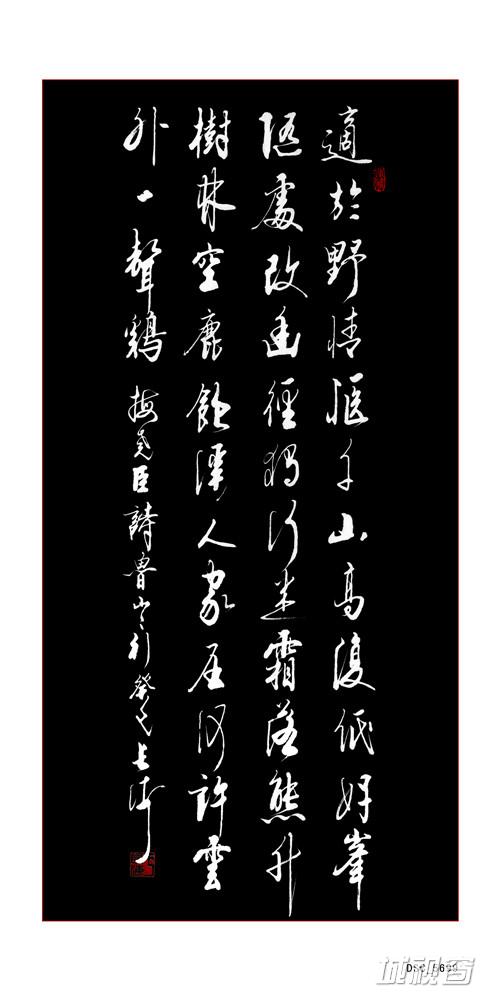 適於野情愜千山高復低好峯
隨處改幽徑獨行迷霜落熊升
樹林空鹿飲溪人家在何許雲
外一聲鷄 梅堯臣詩魯山行癸巳
城视窗